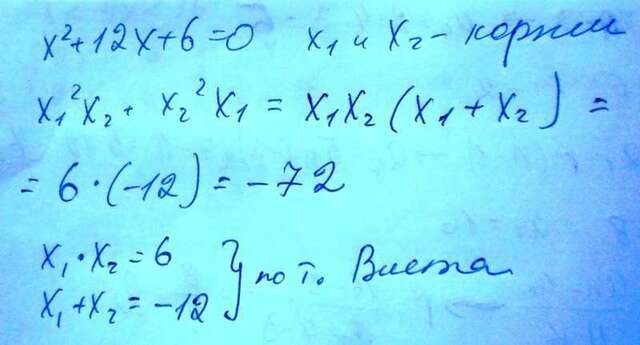 x²+12x+6=0 x₁ и x₂ - корни
x₁²x₂ + x₂²x₁ = x₁x₂(x₁+x₂) =
= 6·(-12) = -72
x₁·x₂=6
x₁+x₂=-12 } по т. Виета